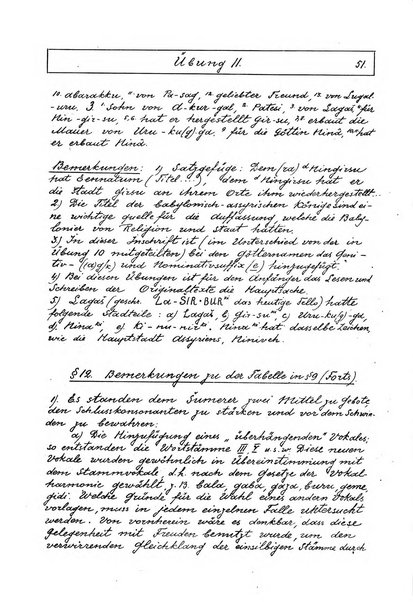 Übung 11. 51.
10. abarakku, 11. von Pa-sag, 12. geliebter Freund, 13. von Lugal-
uru. 3. 1 Sohn von A-kur-gal, 2. Patesi, 3. von Lagaš 4. für
Nin-gir-su, 5.6. hat er hergestellt Gir-su, erbaut die
Mauer von Uru-ku(g)-ga 9 für die Göttin Ninâ, hat
er erbaut Ninâ.
Bemerkungen: 1) Satzgefüge: Dem (ra) Ningirsu
hat Eannatum (Titel ...), dem Ningirsu hat er
die Stadt Girsu an ihrem Orte ihm wiederhergestellt.
2) Die Titel der babylonisch-assyrischen Könige sind ei-
ne wichtige Quelle für die Auffassung, welche die Baby-
lonier von Religion und Staat hatten.
3) In dieser Inschrift ist (im Unterschied von der in
Übung 10 mitgeteilten) bei den Götternamen das Geni-
tiv- und Nominativsuffix (e) hinzugefügt.
4) Bei diesen Übungen ist für den Anfänger das Lesen und
Schreiben der Originaltexte die Hauptsache.
5) Lagaš (geschr. La-ŠIR-BUR das heutige Tello) hatte
folgende Stadtteile: a) Lagaš, b) Gir-su, c) Uru-ku(g)-ga,
d) Ninâ, e) Ki-nu-nir. Ninâ hat dasselbe Zeichen,
wie die Hauptstadt Assyriens, Niniveh.
§ 12. Bemerkungen zu der Tabelle in § 9 (Forts.)
1) Es standen dem Sumerer zwei Mittel zu Gebote,
den Schlusskonsonanten zu stärken und vor dem Schwin-
den zu bewahren.
a) Die Hinzufügung eines „überhängenden" Vokales;
so entstanden die Wortstämme III, V u.s.w. Diese neuen
Vokale wurden gewöhnlich in Übereinstimmung mit
dem Stammvokale, d.h. nach dem Gesetze der Vokal-
harmonie gewählt, z.B. bala, gaba, gaza, buru, geme,
gidi. Welche Gründe für die Wahl eines andern Vokals
vorlagen, muss in jedem einzelnen Falle untersucht
werden. Von vornherein wäre es denkbar, dass diese
Gelegenheit mit Freuden benutzt wurde, um den
verwirrenden Gleichklang der einsilbigen Stämme durch